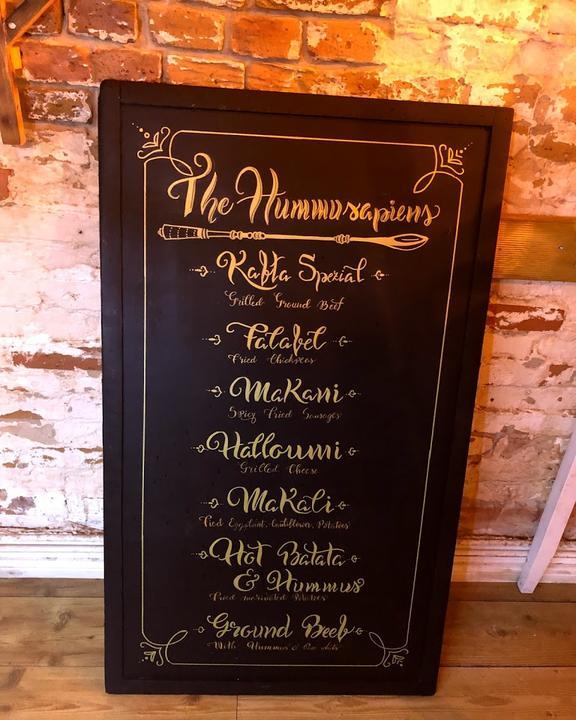 The Hummusapiens
Kafta Spezial
Grilled Ground Beef
Falafel
Fried Chickpeas
Makani
Spicy Fried Sausages
Halloumi
Grilled Cheese
Makali
Fried Eggplant, Cauliflower, Potatoes
Hot Batata
& Hummus
Fried marinated Potatoes
Ground Beef
With Hummus &